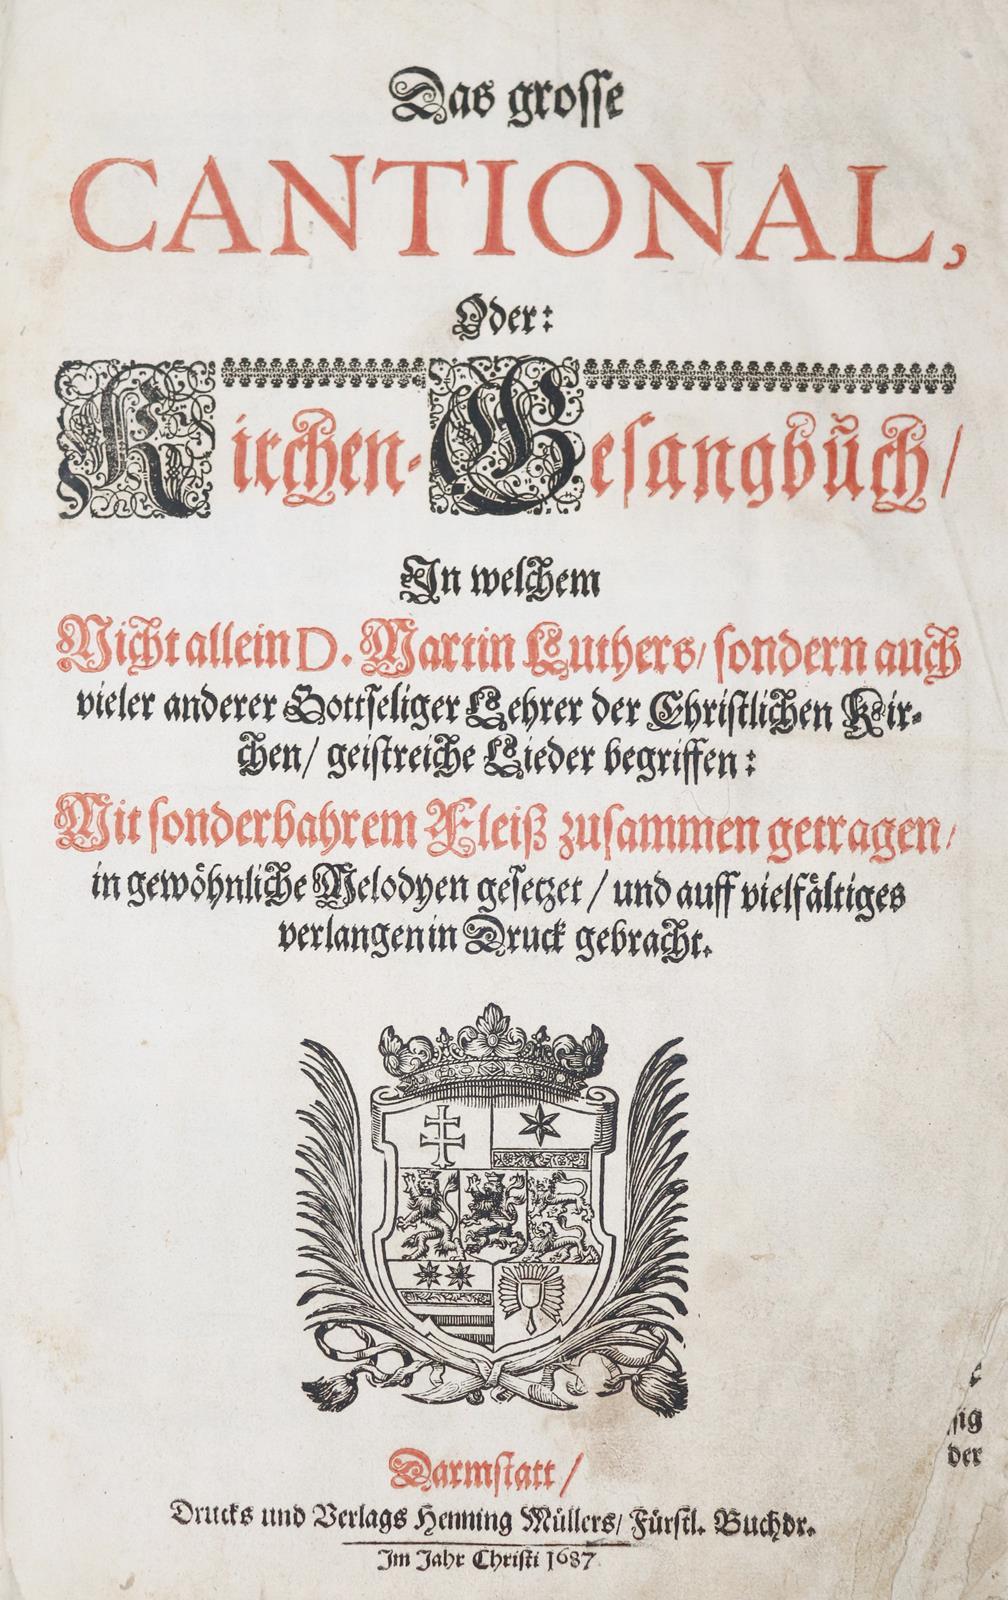 Das grosse
CANTIONAL,
Oder:
Kirchen-Gesangbůch/
In welchem
Nicht allein D. Martin Luthers/ sondern auch
vieler anderer Gottseliger Lehrer der Christlichen Kir-
chen/ geistreiche Lieder begriffen:
Mit sonderbahrem Fleiß zusammen getragen/
in gewöhnliche Melodyen gesetzet / und auff vielfältiges
verlangen in Druck gebracht.
Darmstatt/
Drucks und Verlags Henning Müllers/ Fürstl. Buchdr.
Im Jahr Christi 1687
der